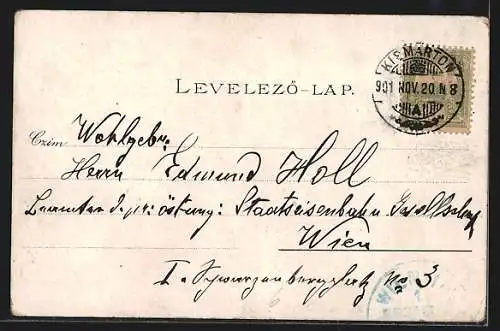 LEVELEZŐ-LAP.
KISMARTON
901 NOV. 20 N 8
A
Czim Wohlgebr.
Herrn Edmund Holl
Beamter d. pr: östung: Staatseisenbahn Gesellschaft
Wien
I. Schwarzenbergplatz No 3
WIEN